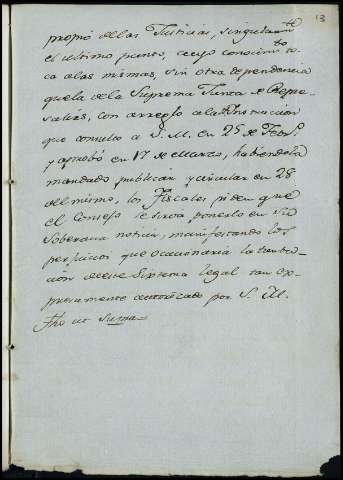 13
propio de las Justicias, singularmte
el ultimo punto, cuyo conocimto to-
ca a las mismas, sin otra dependencia
que la de la Suprema Junta de Repre-
salias, con arreglo a la Instruccion
que consultó a S. M. en 29 de Febro
y aprobó en 17 de Marzo, habiendola
mandado publicar y circular en 28
del mismo, los Fiscales piden que
el Consejo se sirva ponerlo en su
Soberana noticia, manifestando los
perjuicios que ocasionaria la
cion de este Sistema legal tan ex-
presamente autorizado por S. M.
Fho ut supra